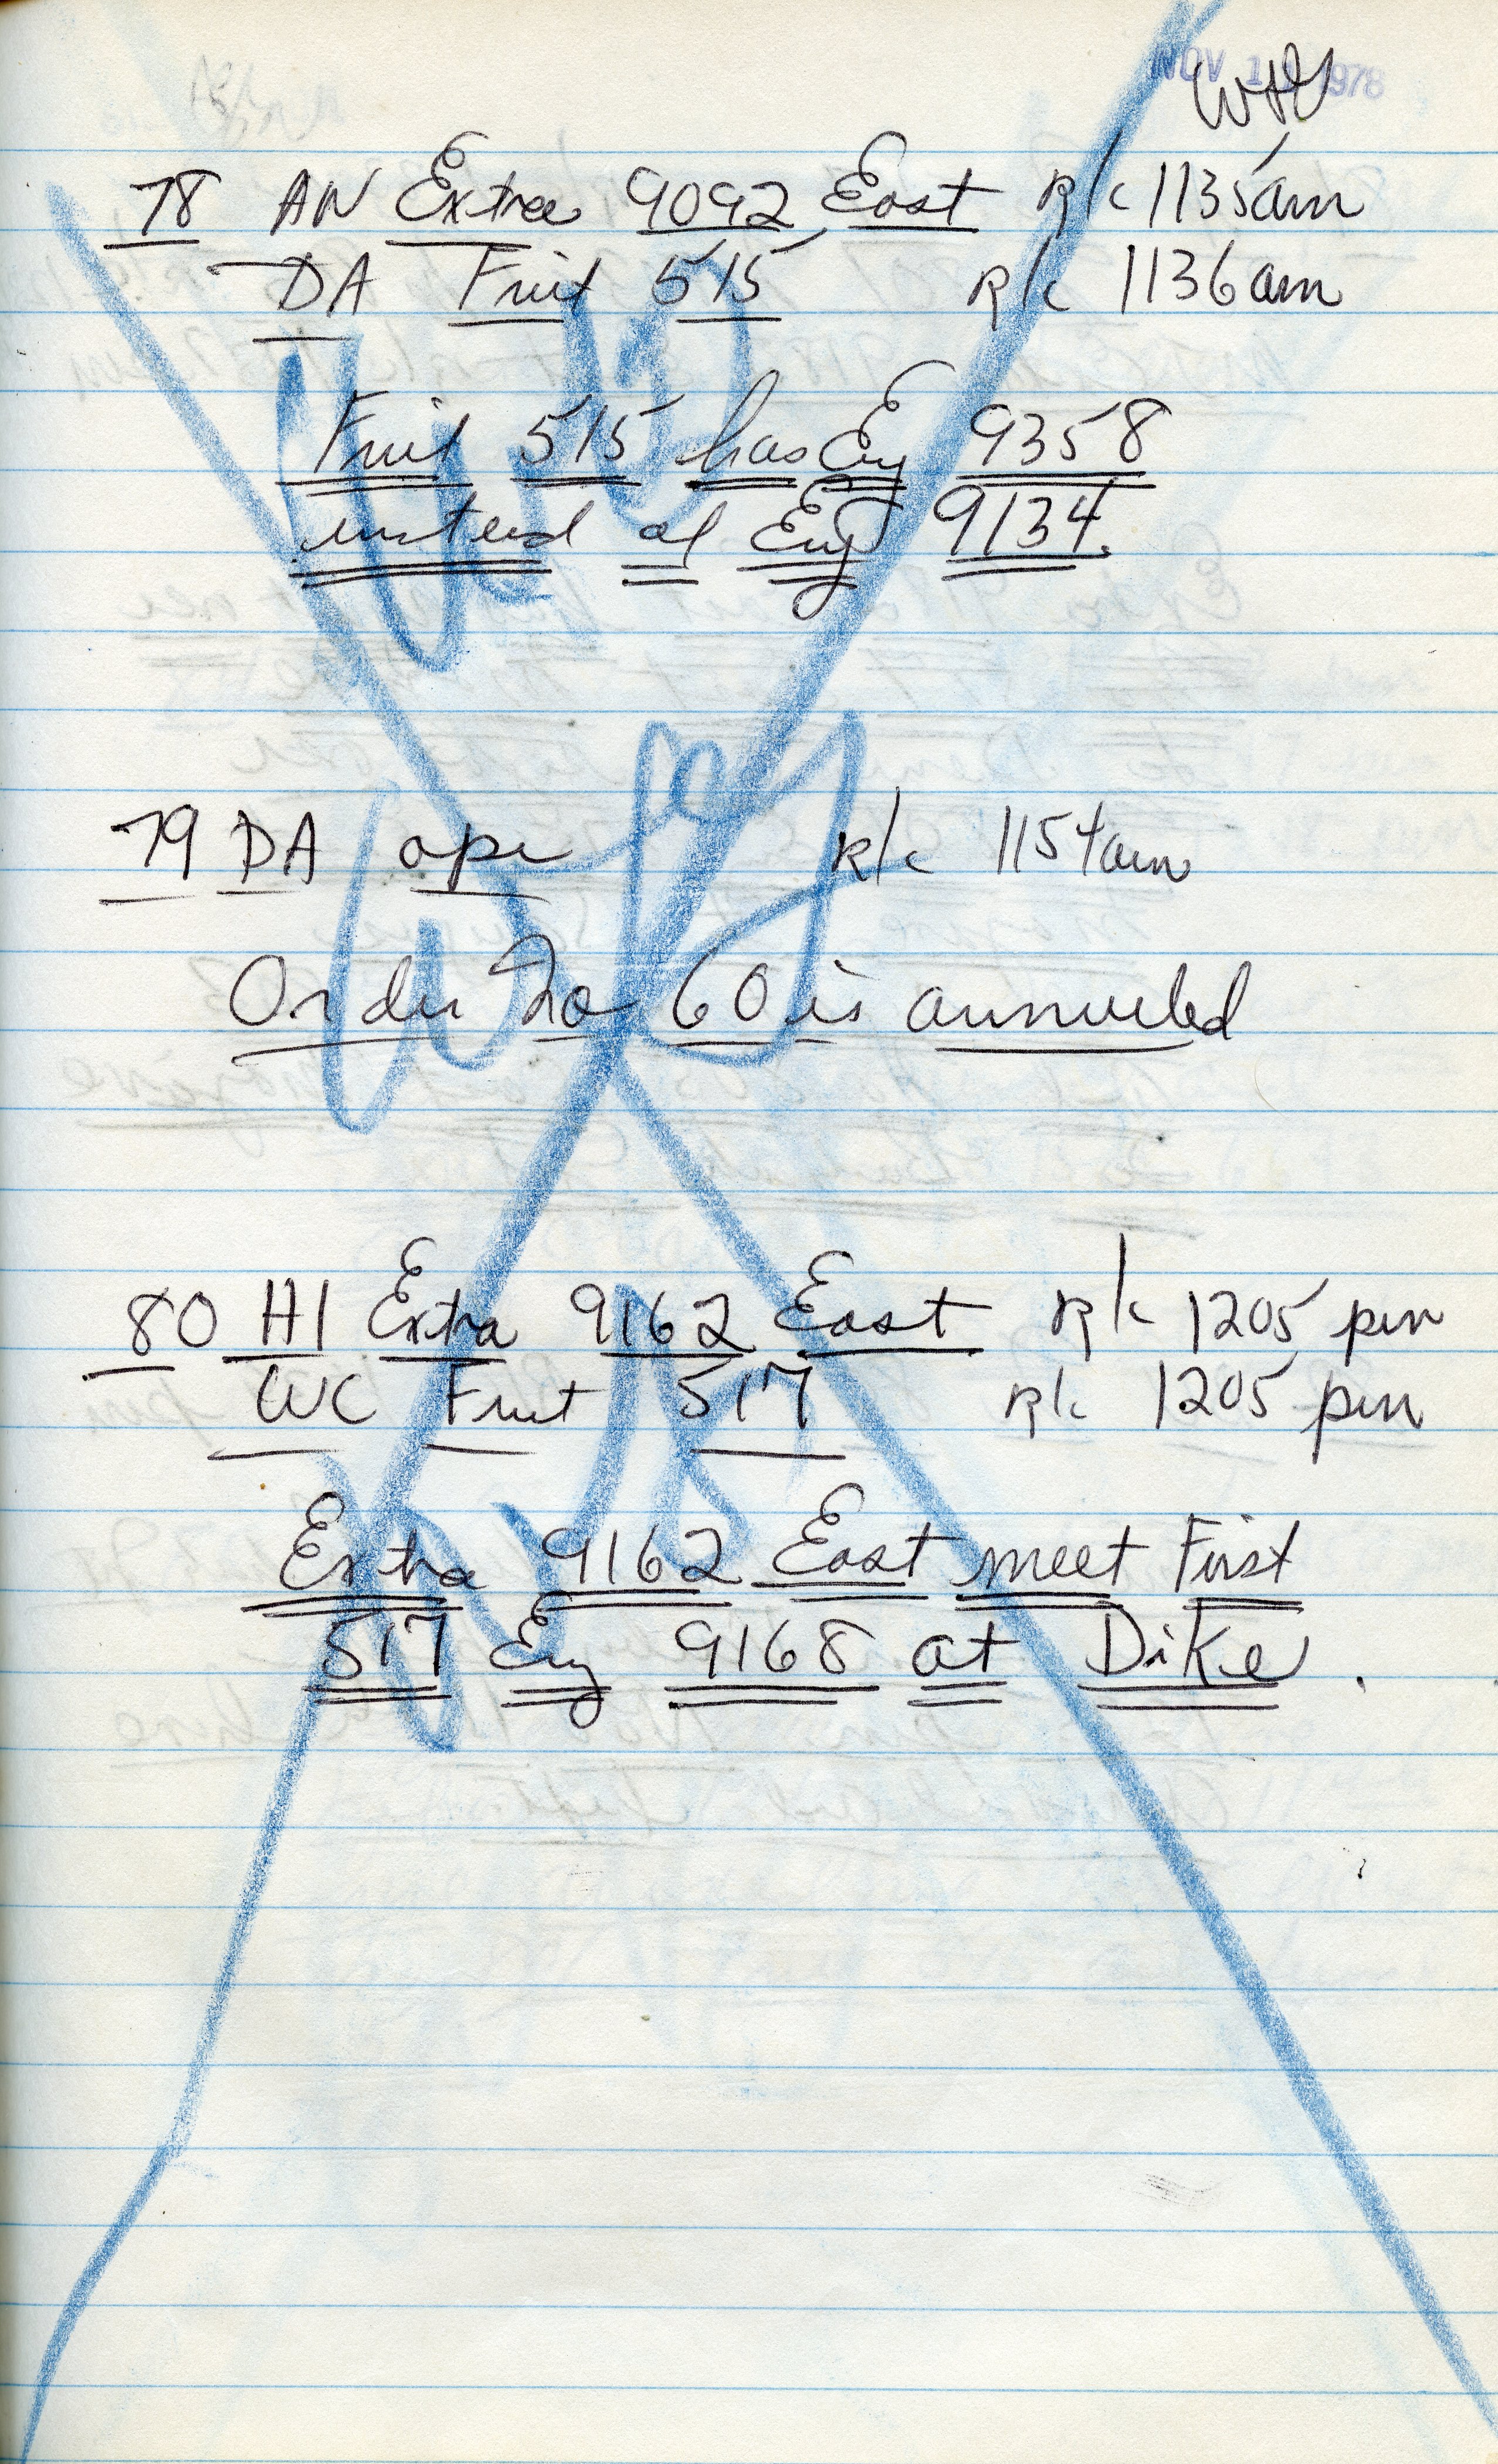 NOV 1978
78 AN Extra 9092 East R/c 1135am
DA First 515 R/c 1136am
First 515 has Eng 9358
instead of Eng 9134.
79 DA opr R/c 1154am
Order No 60 is annulled
80 HI Extra 9162 East R/c 1205 pm
WC First 517 R/c 1205 pm
Extra 9162 East meet First
517 Eng 9168 at Dike.